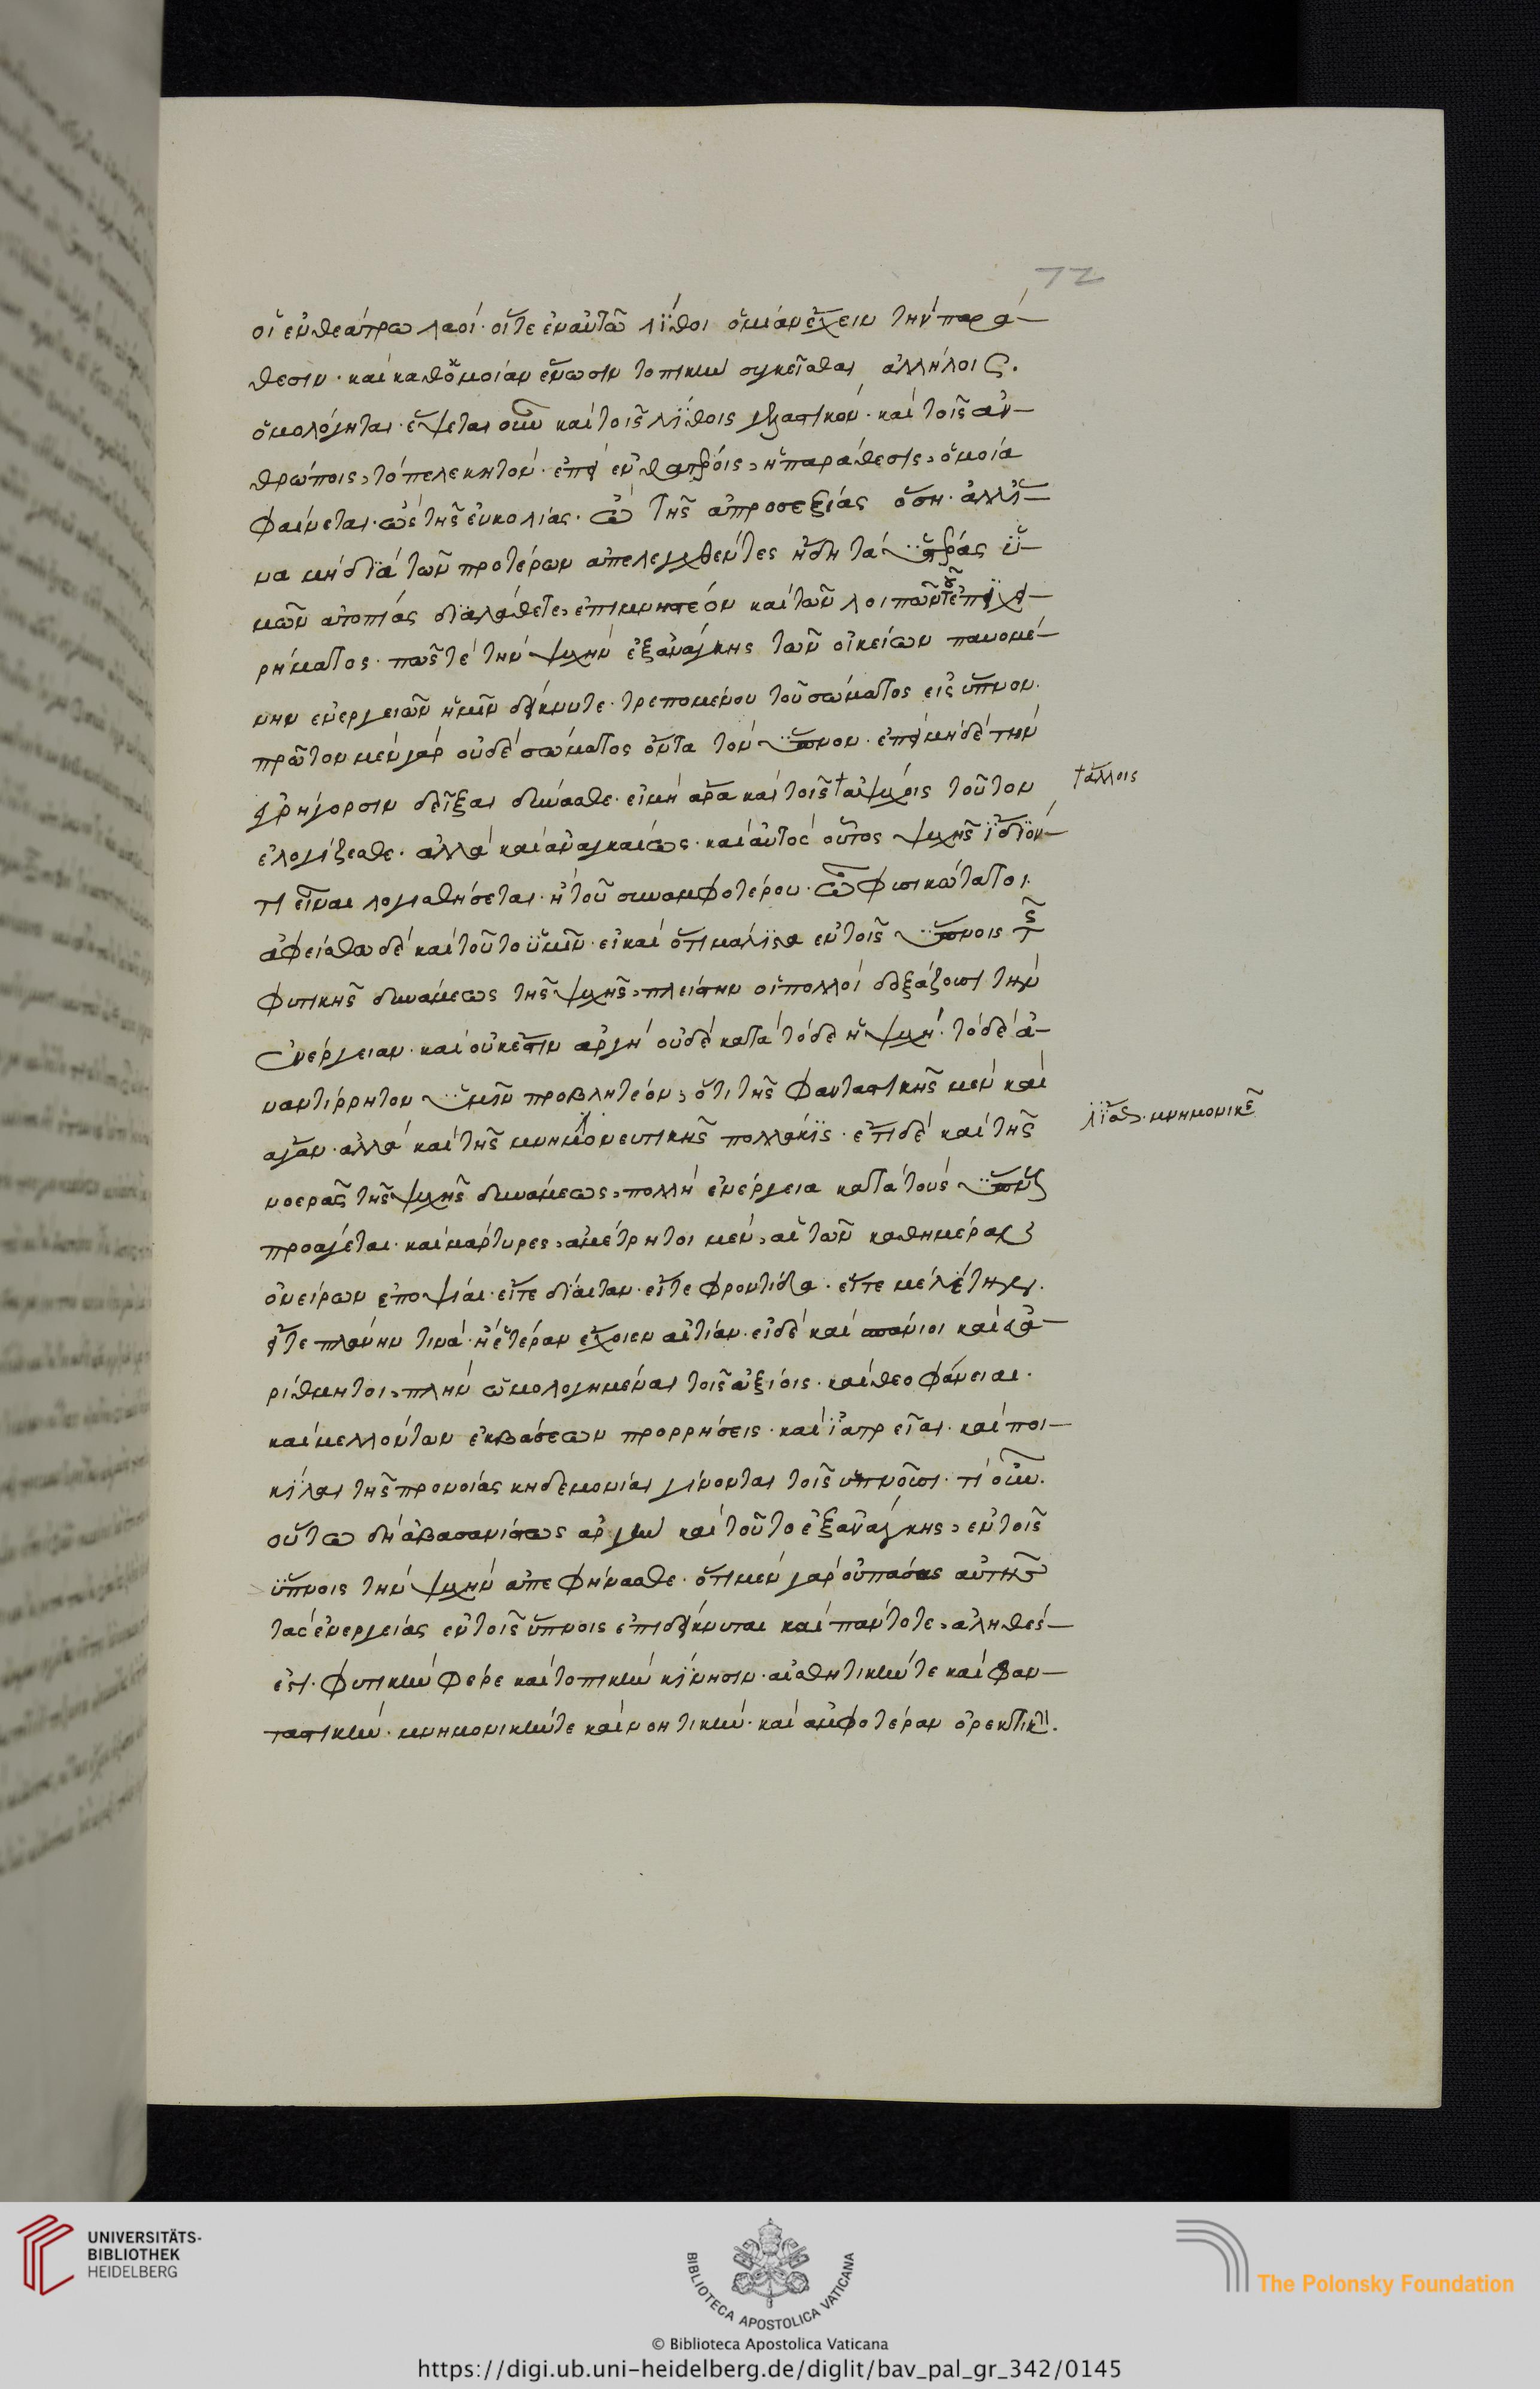 72
οἱ ἐν θεάτρω λαοὶ· οἵτε ἐν αὐτῶ λίθοι ὁμίαν ἔχειν τὴν παρά-
θεσιν· καὶ καθ' ὁμοίαν ἕνωσιν τοπικὴν συγκεῖσθαι ἀλλήλοις.
ὁμολόγηται· ἕψεται οὖν καὶ τοῖς λίθοις καὶ τοῖς ἀν-
θρώποις, τὸ πελεκητόν· ἐπεὶ ἐν ἡ παράθεσις, ὁμοία
φαίνεται· ὢ τῆς εὐκολίας· ὢ τῆς ἀπροσεξίας ὅση· ἀλλ' ἵ-
να μὴ διὰ τῶν προτέρων ἀπελεγχθέντες ἤδη τὰ ὑ-
μῶν ἀτοπίας διαλάθετε, ἐπιμνηστέον καὶ τῶν λοιπῶν τοῦ ἐπιχει-
ρήματος· πῶς τὲ τὴν ψυχὴν ἐξανάγκης τῶν οἰκείων παυομέ-
νην ἐνεργειῶν ἡμῖν δείκνυτε· τρεπομένου τοῦ σώματος εἰς ὕπνον·
πρῶτον μὲν γὰρ οὐδὲ σώματος ὄντα τὸν ὕπνον· ἐπεὶ μηδὲ τὴν
ἐγρήγορσιν δεῖξαι δύνασθε· εἰ μὴ ἄρα καὶ τοῖς † ἀψύχοις τοῦτον
† ἄλλοις
ἐλογίζεσθε· ἀλλὰ καὶ ἀναγκαίως· καὶ αὐτὸς οὗτος ψυχῆς ἴδιόν
τι εἶναι λογισθήσεται· ἢ τοῦ συναμφοτέρου· ὦ φυσικώτατοι·
ἀφείσθω δὲ καὶ τοῦτο ὑμῖν· εἰ καὶ ὅτι μάλιστα ἐν τοῖς ὕπνοις τῆς
φυτικῆς δυνάμεως τῆς ψυχῆς, πλείστην οἱ πολλοὶ δοξάζουσι τὴν
ἐνέργειαν· καὶ οὐκέστιν ἀργὴ οὐδὲ κατὰ τόδε ἡ ψυχὴ· τὸ δὲ ἀ-
ναντίρρητον ὑμῖν προβλητέον, ὅτι τῆς φανταστικῆς μὲν καὶ
ἄγαν· ἀλλὰ καὶ τῆς μνημονευτικῆς πολλάκις· ἔτι δὲ καὶ τῆς
μνημονικῆς
νοερᾶς τῆς ψυχῆς δυνάμεως, πολλὴ ἐνέργεια κατὰ τοὺς ὕπνους
προάγεται· καὶ μάρτυρες, ἀμέτρητοι μὲν, αἱ τῶν καθημέραν
ὀνείρων ἐποψίαι· εἴτε δίαιταν· εἴτε φροντίδα· εἴτε μελέτην·
εἴτε πλάνην τινὰ· ἢ ἑτέραν ἔχοιεν αἰτίαν· εἰ δὲ καὶ σπάνιοι καὶ εὐα-
ρίθμητοι, πλὴν ὡμολογημέναι τοῖς ἀξίοις· καὶ θεοφάνειαι·
καὶ μελλόντων ἐκβάσεων προρρήσεις· καὶ ἰατρεῖαι· καὶ ποι-
κίλαι τῆς προνοίας κηδεμονίαι γίνονται τοῖς ὑπνοῦσι· τί οὖν·
οὕτω δὴ ἀβασανίστως ἀργὴν καὶ τοῦτο ἐξανάγκης, ἐν τοῖς
ὕπνοις τὴν ψυχὴν ἀπεφήνασθε· ὅτι μὲν γὰρ οὐ πάσας αὐτῆς
τὰς ἐνεργείας ἐν τοῖς ὕπνοις ἐπιδείκνυται καὶ πάντοτε, ἀληθές
ἐστι· φυτικὴν φέρε καὶ τοπικὴν κίνησιν· αἰσθητικήν τε καὶ φαν-
ταστικὴν· μνημονικήν τε καὶ νοητικὴν· καὶ ἀμφοτέραν ὀρεκτικὴν.
UNIVERSITÄTS-
BIBLIOTHEK
HEIDELBERG
BIBLIOTECA APOSTOLICA VATICANA
The Polonsky Foundation
© Biblioteca Apostolica Vaticana
https://digi.ub.uni-heidelberg.de/diglit/bav_pal_gr_342/0145